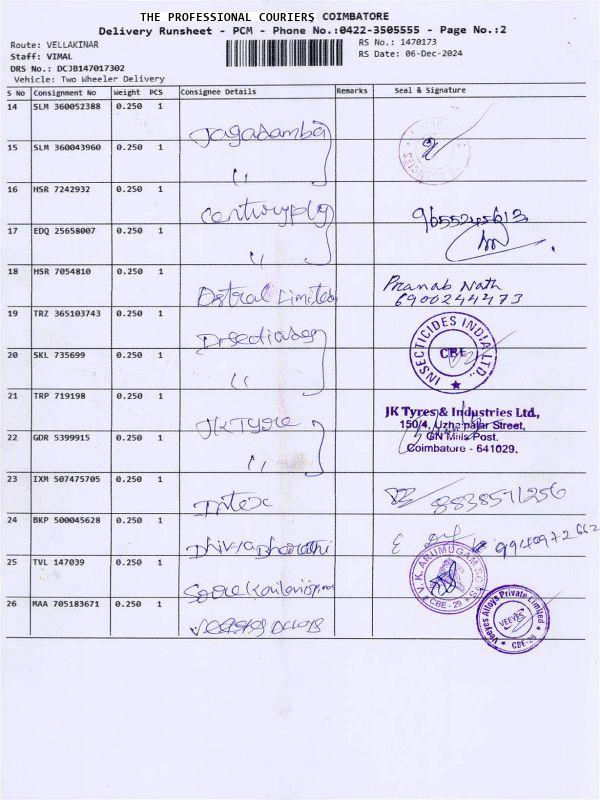 THE PROFESSIONAL COURIERS COIMBATORE
Delivery Runsheet - PCM - Phone No.:0422-3505555 - Page No.:2
Route: VELLAKINAR
RS No.: 1470173
Staff: VIMAL
RS Date: 06-Dec-2024
DRS No.: DCJB147017302
Vehicle: Two Wheeler Delivery
S No Consignment No Weight PCS Consignee Details Remarks Seal & Signature
14 SLM 360052388 0.250 1
Jagadamba
15 SLM 360043960 0.250 1
"
16 HSR 7242932 0.250 1
Centuryply
17 EDQ 25658007 0.250 1
"
18 HSR 7054810 0.250 1
Limited
Pranab Nath
6900244473
19 TRZ 365103743 0.250 1
INSECTICIDES INDIA LTD.,
CBE
20 SKL 735699 0.250 1
"
21 TRP 719198 0.250 1
JK Tyre
JK Tyres & Industries Ltd.,
150/4, Uzhaipalar Street,
GN Mills Post.
Coimbatore - 641029.
22 GDR 5399915 0.250 1
"
23 IXM 507475705 0.250 1
Intex
8838571256
24 BKP 500045628 0.250 1
Dhivya Bharathi
9940972662
25 TVL 147039 0.250 1
V.K. ARUMUGAM
CBE-29
26 MAA 705183671 0.250 1
Veeyes Alloys Private Limited
VEEYES
CBE-29